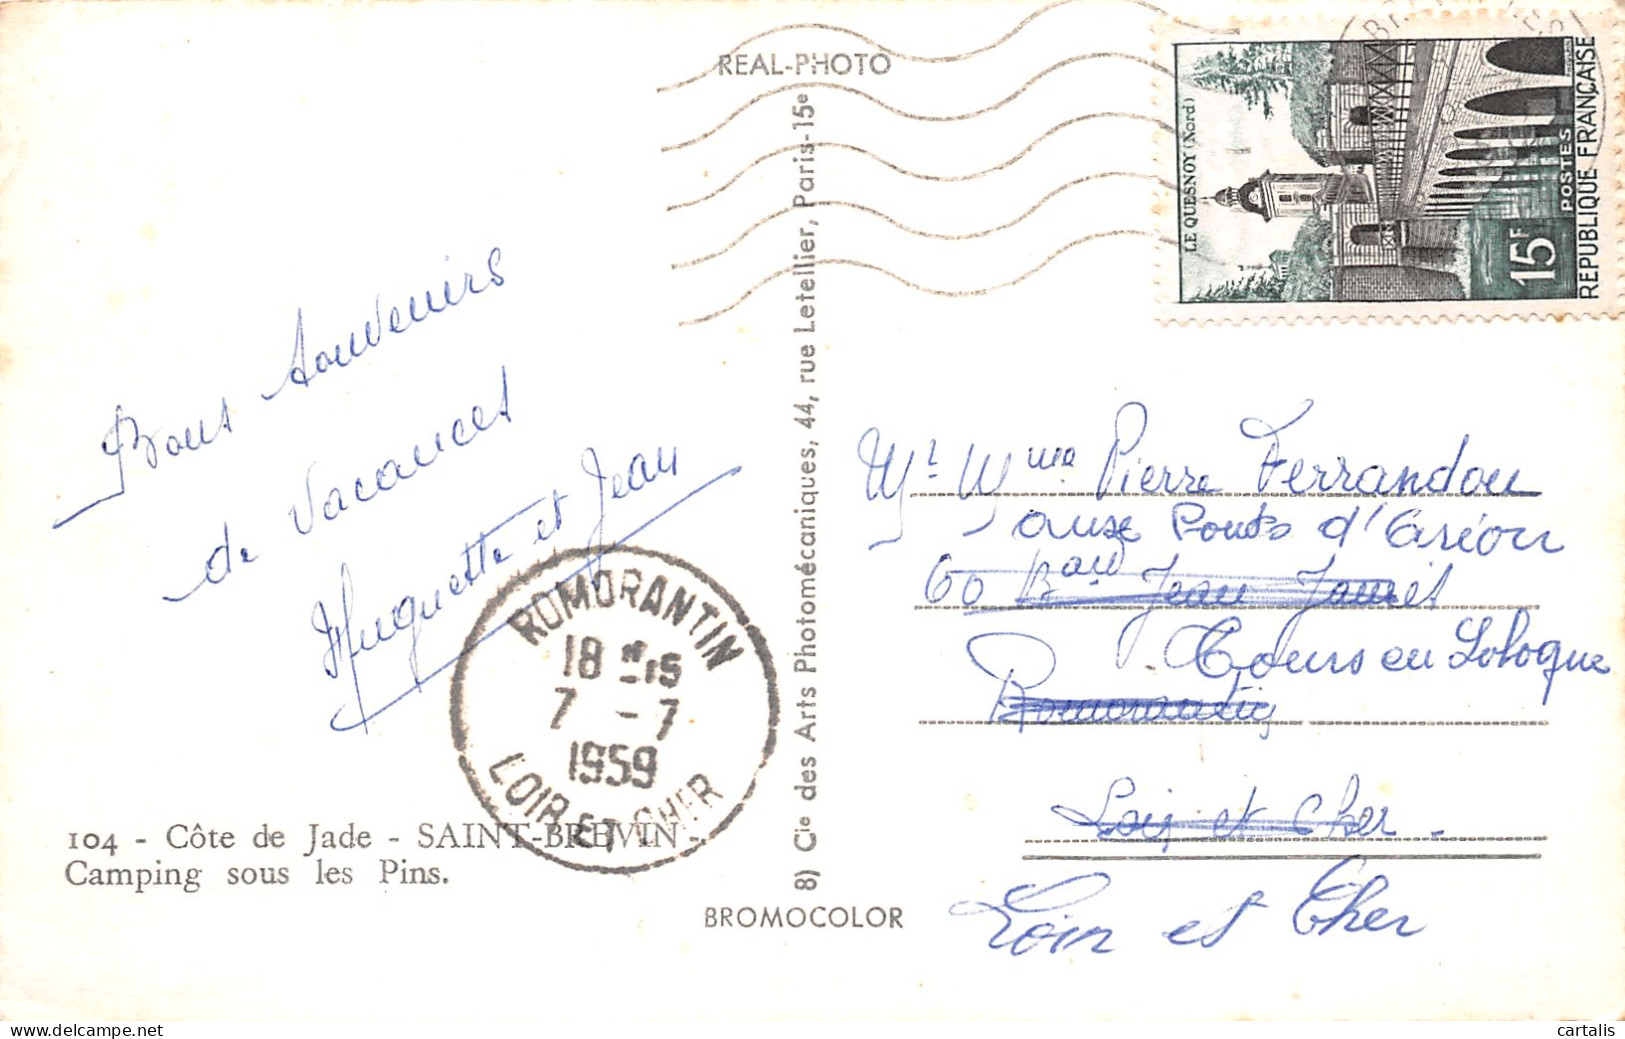 REAL-PHOTO
Bons Souvenirs
de Vacances
Huguette et Jean
ROMORANTIN
18 H 15
7 - 7
1959
LOIR ET CHER
104 - Côte de Jade - SAINT-BREVIN -
Camping sous les Pins.
8) Cie des Arts Photomécaniques, 44, rue Letellier, Paris-15e
BROMOCOLOR
LE QUESNOY (Nord)
15F
POSTES
REPUBLIQUE FRANÇAISE
Mr Mme Pierre Ferrandou
aux Ponts d'
60 Bd Jean Jaurès
Cours en Sologne
Romorantin
Loir et Cher -
Loir et Cher
cartalis